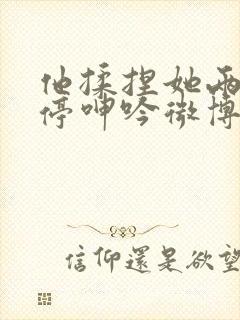 他揉捏她兩
停呻吟微博
信仰還是欲望